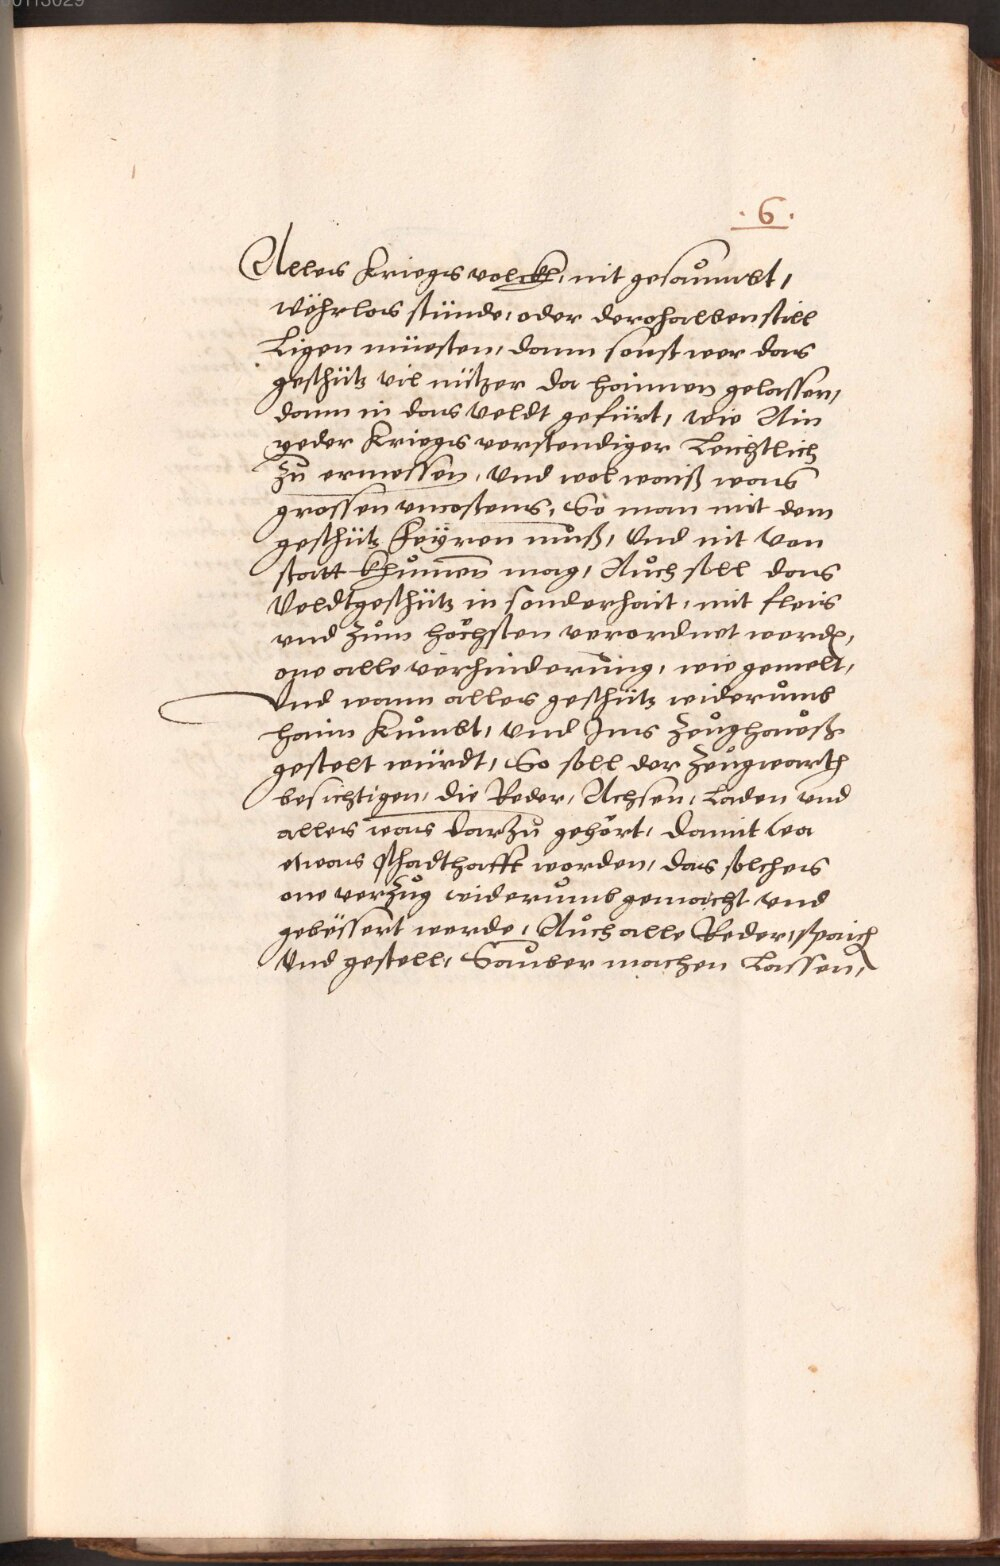 00113029
. 6 .
Alles Kriegs volckh, nit gesaumbt,
wöhrlos stünde, oder derohalben still
Ligen müesten, dann sonst wer das
geschütz vil nützer da haimen gelassen,
dann in das veldt gefürt, wie Ain
yeder Kriegs verstendiger Leichtlich
zů ermessen, und wol waiß was
grossen uncostens, So man mit dem
geschütz feÿren můß, Und nit von
statt khůmen mag, Aůch soll das
Veldtgeschütz in sonderhait, mit fleis
und zům höchsten verordnet werdn,
one alle verhinderůng, wie gemelt,
Und wann alles geschütz widerůmb
haim kůmbt, und Ins Zeůghaůß
gestelt würdt, So soll der Zeůgwarth
besichtigen, die Reder, Achsen, Laden und
alles was darzů gehört, damit wa
etwas schadthafft worden, das solches
one verzůg widerůmb gemacht und
gebessert werde, Aůch alle Reder, spaich
Und gestell, Saůber machen Lassen,